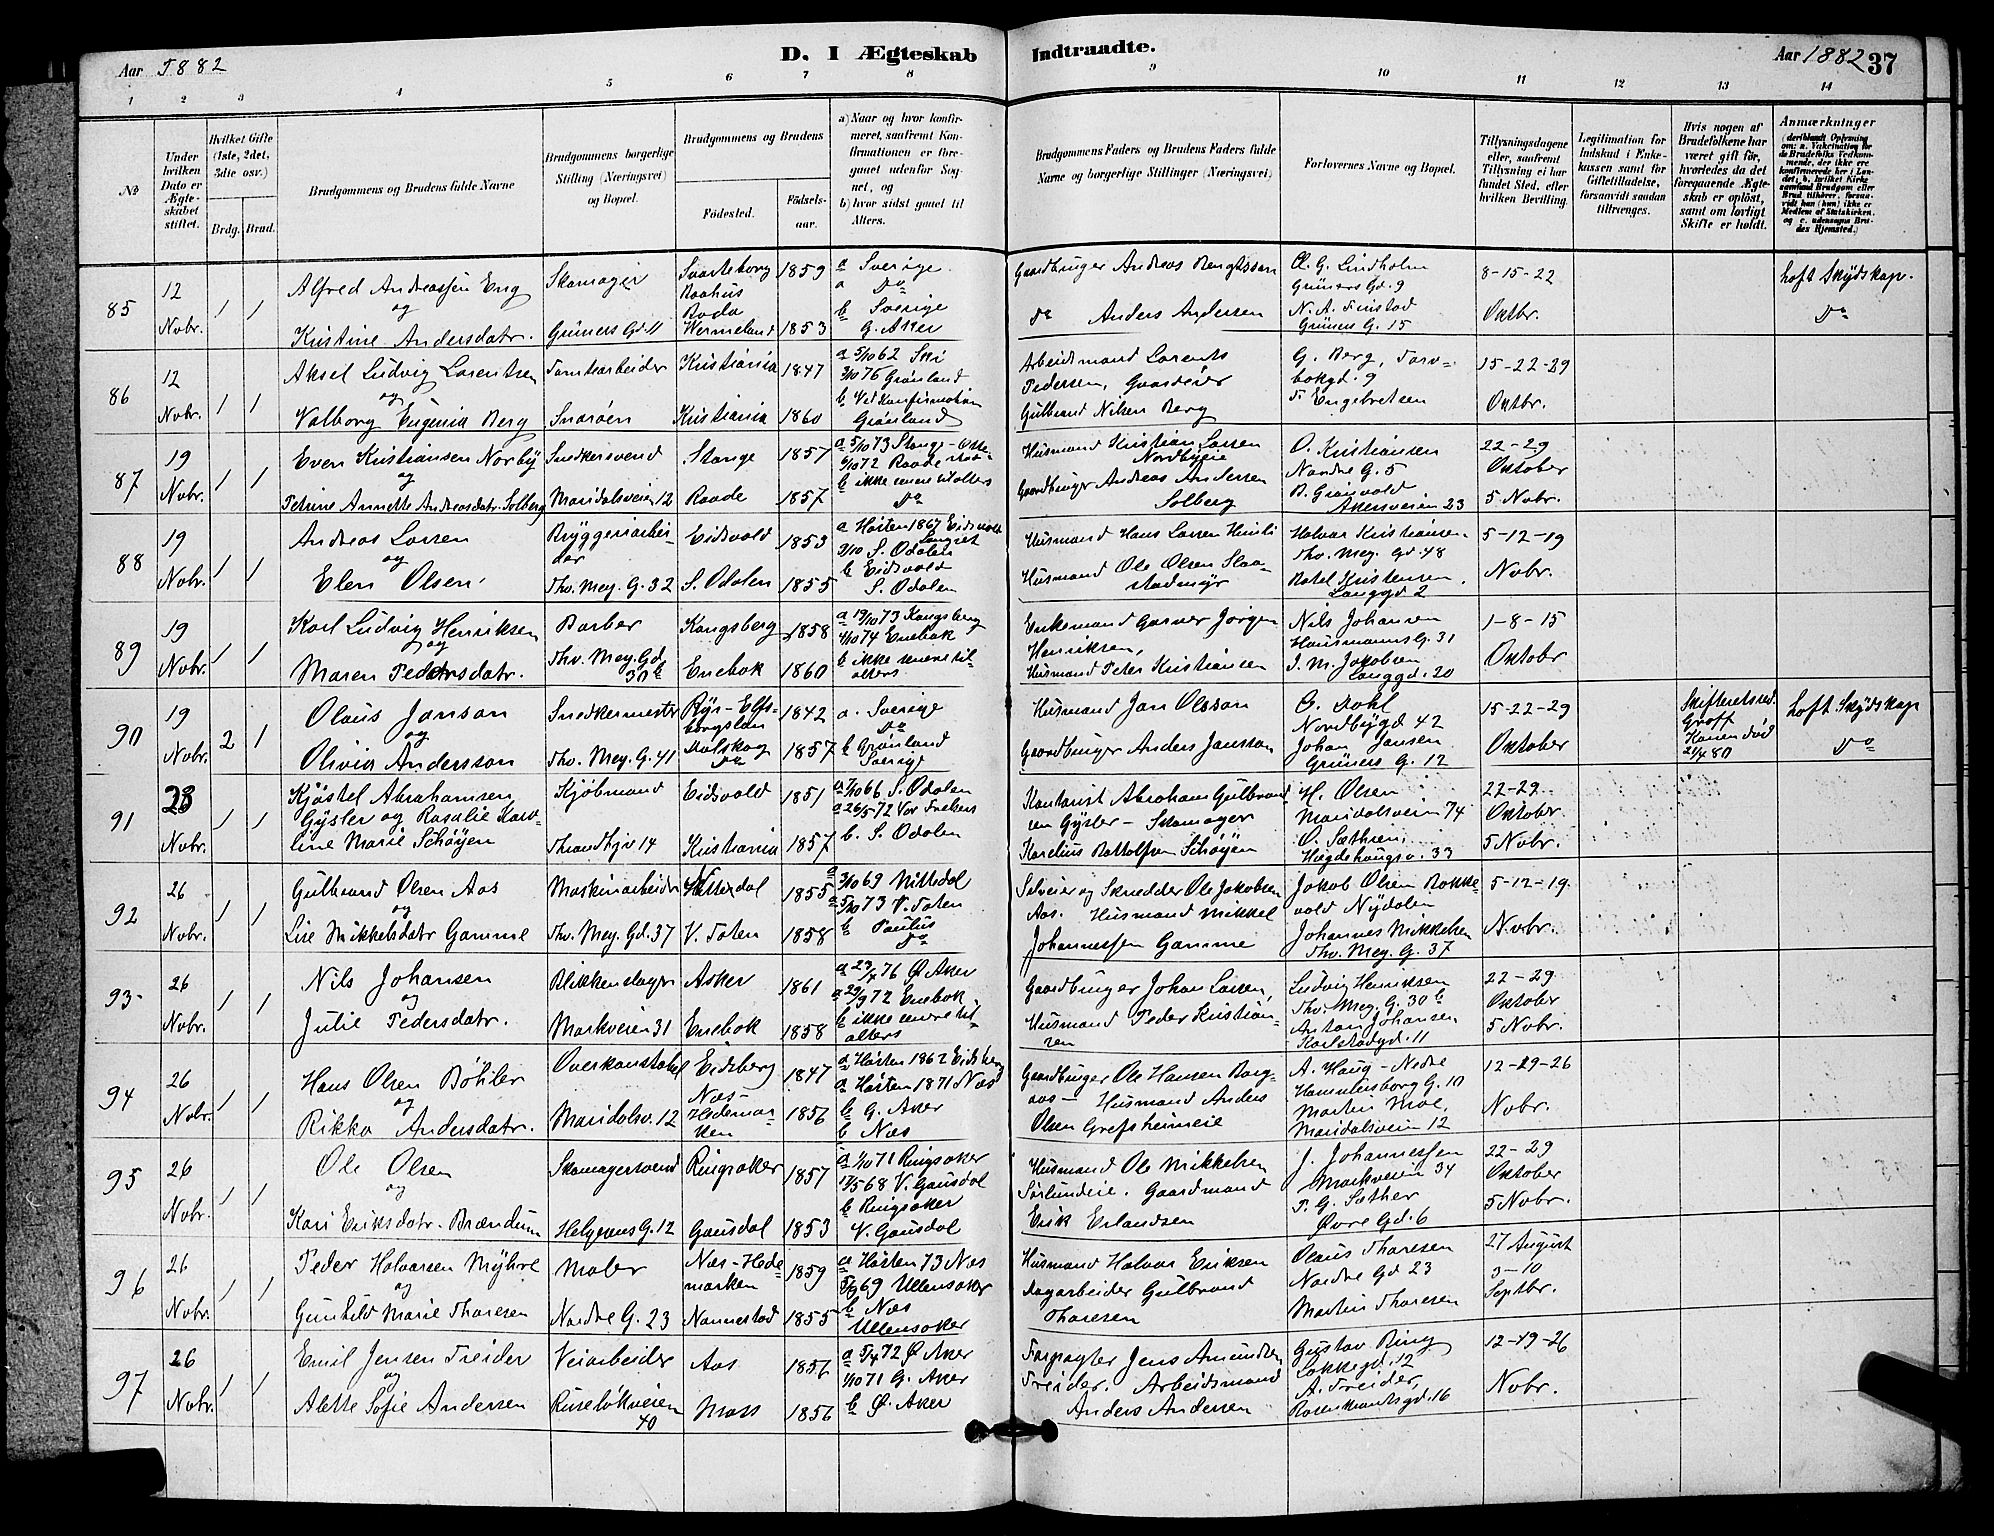 Aar 1882
D. I Ægteskab Indtraadte.
Aar 1882 37
1 2 3 4 5 6 7 8 9 10 11 12 13 14
No
Under hvilken Dato er Ægteskabet stiftet.
Hvilket Gifte (1ste, 2det, 3die osv.)
Brdg. Brud.
Brudgommens og Brudens fulde Navne
Brudgommens borgerlige Stilling (Næringsvei) og Bopæl.
Brudgommens og Brudens
Fødested.
Fødselsaar.
a) Naar og hvor konfirmeret, samfremt Konfirmationen er foregaaet udenfor Sognet, og
b) hvor sidst gaaet til Alters.
Brudgommens Faders og Brudens Faders fulde Navne og borgerlige Stillinger (Næringsvei)
Forlovernes Navne og Bopæl.
Tillysningsdagene eller, saafremt Tillysning ei har fundet Sted, efter hvilken Bevilling.
Legitimation for Indskud i Enkekassen samt for Giftetilladelse, forsaavidt saadan tiltrænges.
Hvis nogen af Brudefolkene har været gift før, hvorledes da det foregaaende Ægteskab er opløst, samt om lovligt Skifte er holdt.
Anmærkninger
(deriblandt Oplysning om: a. Vakcination for de Brudefolks Vedkommende, der ikke ere konfirmerede her i Landet; b. hvilket Kirkesamfund Brudgom eller Brud tilhører, forsaavidt han (hun) ikke er Medlem af Statskirken, og c. udensogns Brudes Hjemsted.)
85 12 Novbr. 1 1 Alfred Andreassen Eng og Kristine Andersdatr.
Skomager Grüners Gd 11
Svarteborg Baahus 1859
Wermeland 1853
a Sverige a Do b Sverige G. Aker
Gaardbruger Andreas Bengtsson
Do Anders Andersen
C. G. Lindholm Grüners Gd. 9
N. A. Finstad Grüners G. 15
8-15-22 Oktbr.
Do
86 12 Novbr. 1 1 Aksel Ludvig Lorentsen og Valborg Eugenia Berg
Tomtearbeider Snarøen
Kristiania 1847
Kristiania 1860
a 5/10 62 Ski
Grønland
b Ved Konfirmation Grønland
Arbeidsmand Lorents Pedersen, Gaardeier Gulbrand Nilsen Berg
G. Berg, Torvbakgd. 9
F. Engebretsen
15-22-29 Oktbr.
87 19 Novbr. 1 1 Even Kristiansen Norby og Petrine Annette Andreasdatr. Solberg
Snedkersvend Maridalsveien 12
Stange 1857
Raade 1857
a 5/10 73 Stange
6/10 72 Raade
b ikke senere til alters Do
Husmand Kristian Larsen Nordbyeie
Gaardbruger Andreas Andersen Solberg
O. Kristiansen Nordre G. 5
B. Grønvold Akersveien 23
22-29 Oktober 5 Novbr.
88 19 Novbr. 1 1 Andreas Larsen og Elen Olsen
Bryggeriarbeider Thv. Mey. G. 32
Eidsvold 1853
S. Odalen 1855
a Høsten 1867 Eidsvold Langset
S. Odalen
b Eidsvold S. Odalen
Husmand Hans Larsen
Husmand Ole Olsen
Halvar Kristiansen Thv. Mey. Gd. 48
Botel Kristensen Langgd 2
5-12-19 Novbr.
89 19 Novbr. 1 1 Karl Ludvig Henriksen og Maren Pedersdatr.
Barber Thv. Mey. Gd. 30 b
Kongsberg 1858
Enebak 1860
a 19/10 73 Kongsberg
4/10 74 Enebak
b ikke senere til alters
Enkemand Garver Jørgen Henriksen,
Husmand Peter Kristiansen
Nils Johansen Hausmanns G. 31
J. M. Jakobsen Langgd. 20
1-8-15 Oktober
90 19 Novbr. 2 1 Olaus Janson og Olivia Andersson
Snedkermester Thv. Mey. G. 41
Ryr - Elfsborgslän 1842
Dalskog Do 1857
a. Sverige Do b Grønland Sverige
Husmand Jan Olsson
Gaardbruger Anders Jansson
C. Dahl Nordbygd 42
Johan Jansen Grüners G. 12
15-22-29 Oktober
Do
91 Novbr. 1 1 Kjøstel Abrahamsen Gysler og Rosalie Karoline Marie Schøyen
Kjøbmand Throndhjv 14
Eidsvold 1851
Kristiania 1857
a 7/10 66 S. Odalen
a 26/5 72 Vor Frelsers
b. S. Odalen
Kontorist Abraham Gulbrandsen Gysler - Skomager Karelius Schøyen
H. Olsen Maridalsveien 74
O. Sæthren, Hægdehaugsv. 33
22-29 Oktober. 5 Novbr.
92 26 Novbr. 1 1 Gulbrand Olsen Aas og Lise Mikkelsdatr Gamme
Maskinarbeider Thv. Mey. Gd. 37
Nittedal 1855
V. Toten 1858
a 3/10 69 Nittedal
a 5/10 73 V. Toten
b Paulus Do
Selveier og Skrædder Ole Jakobsen Aas. Husmand Mikkel Johannessen Gamme
Jakob Olsen Nydalen
Johannes Mikkelsen Thv. Mey. G. 37
5-12-19 Novbr.
93 26 Novbr. 1 1 Nils Johansen og Julie Pedersdatr.
Blikkenslager Markveien 31
Asker 1861
Enebak 1858
Ø Aker
a 29/9 72 Enebak
b ikke senere til alters
Gaardbruger Johan Larsen,
Husmand Peder Kristiansen
Ludvig Henriksen Thv. Mey. G. 30 b
Anton Johansen Karlstadgd. 11
22-29 Oktober 5 Novbr.
94 26 Novbr. 1 1 Hans Olsen Bøhler og Rikka Andersdatr.
Overkonstabel Maridalsv. 12
Eidsberg 1847
Næs - Hedemarken 1856
a Høsten 1862 Eidsberg
a Høsten 1871 Næs
b G. Aker b Næs
Gaardbruger Ole Hansen Borgaas - Husmand Anders Olsen Grefsheimeie
A. Haug - Nedre Hammersborg G. 10
Martin Moe, Maridalsveien 12
12-19-26 Novbr.
95 26 Novbr. 1 1 Ole Olsen og Kari Eriksdatr. Brændum
Skomagersvend Helgesens G. 12
Ringsaker 1857
Gausdal 1853
a 1/10 71 Ringsaker
17/5 68 V. Gausdal
b Ringsaker V. Gausdal
Husmand Ole Mikkelsen Sørlundeie. Gaardmand Erik Erlandsen
J. Johannessen Markveien 34
P. G. Sæther Øvre Gd. 6
22-29 Oktober 5 Novbr.
96 26 Novbr. 1 1 Peder Halvorsen Myhre og Gunhild Marie Thoresen
Maler Nordre G. 23
Næs - Hedemarken 1859
Nannestad 1855
a Høsten 73 Næs
69 Ullensaker
b Næs Ullensaker
Husmand Halvor Eriksen
Dagarbeider Gulbrand Thoresen
Olaus Thoresen Nordre Gd 23
Martin Thoresen
27 August 3-10 Septbr.
97 26 Novbr. 1 1 Emil Jensen Treider og Alette Sofie Andersen
Veiarbeider Ruseløkveien 40
Aas 1856
Moss 1856
a 5/4 72 Ø Aker
1/10 71 G. Aker
b Ø. Aker
Forpagter Jens Amundsen Treider. Arbeidsmand Anders Andersen
Gustav Ring Løkkegd. 12
A. Treider, Rosenkrantsgd. 16
12-19-26 Novbr.